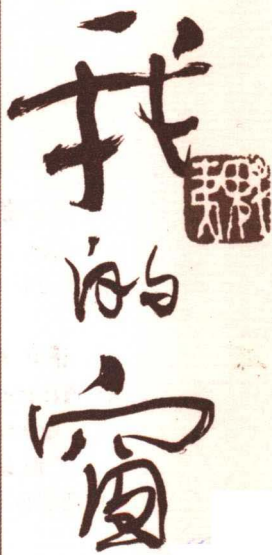 我的窗